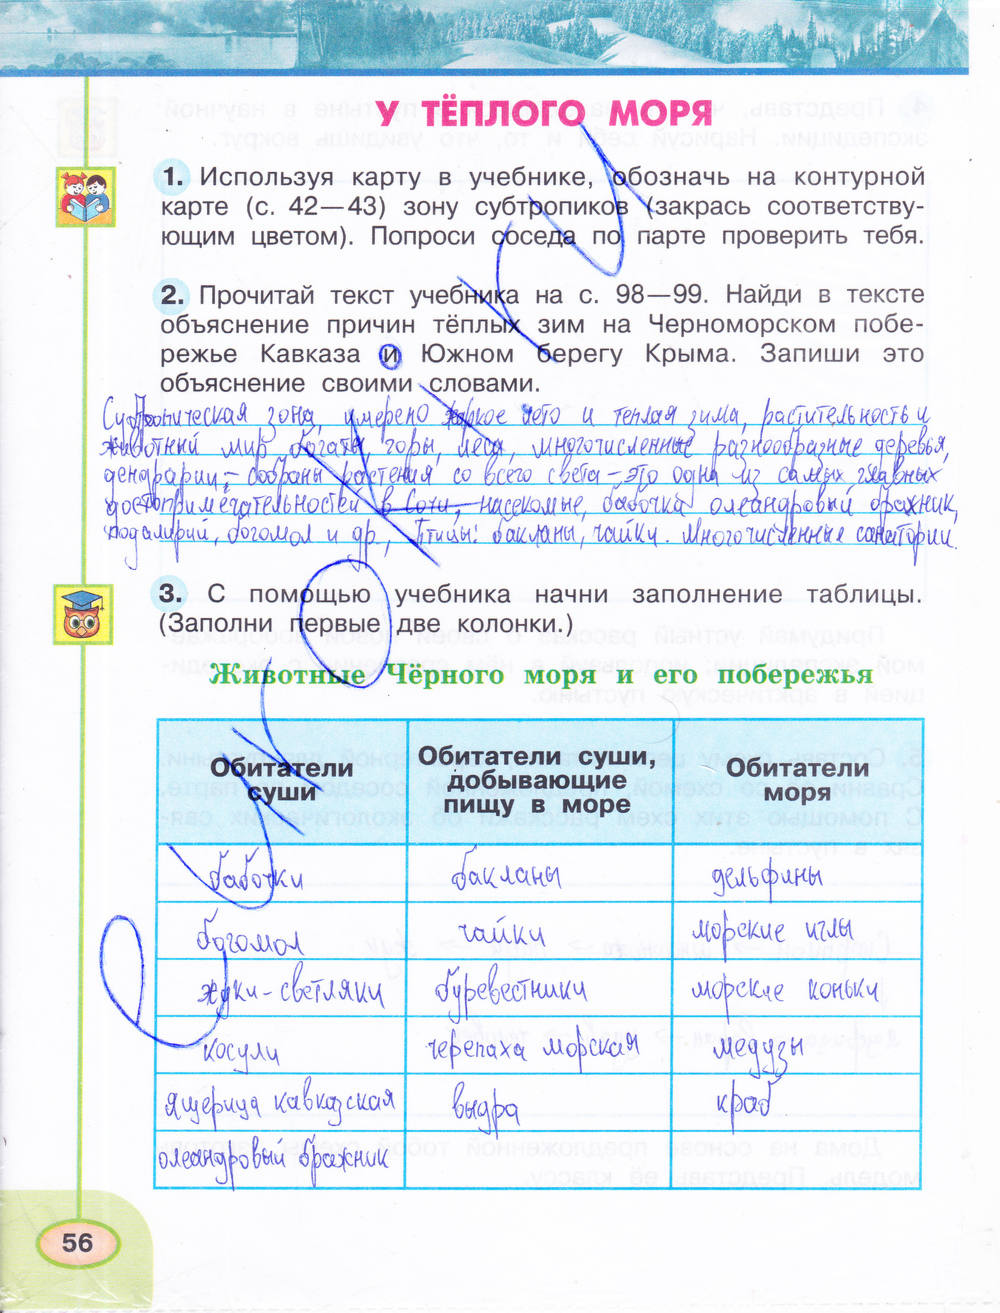 У ТЁПЛОГО МОРЯ
1. Используя карту в учебнике, обозначь на контурной
карте (с. 42—43) зону субтропиков (закрась соответству-
ющим цветом). Попроси соседа по парте проверить тебя.
2. Прочитай текст учебника на с. 98—99. Найди в тексте
объяснение причин тёплых зим на Черноморском побе-
режье Кавказа и Южном берегу Крыма. Запиши это
объяснение своими словами.
Субтропическая зона, умерено жаркое лето и теплая зима, растительность и
животный мир богаты, горы, леса, многочисленные разнообразные деревья,
дендрарии - собраны растения со всего света - это одна из самых главных
достопримечательностей в Сочи, насекомые, бабочка олеандровый бражник,
подалирий, богомол и др., Птицы: бакланы, чайки. Многочисленные санатории.
3. С помощью учебника начни заполнение таблицы.
(Заполни первые две колонки.)
Животные Чёрного моря и его побережья
Обитатели суши
Обитатели суши, добывающие пищу в море
Обитатели моря
бабочки бакланы дельфины
богомол чайки морские иглы
жуки-светляки буревестники морские коньки
косули черепаха морская медузы
ящерица кавказская выдра краб
олеандровый бражник
56